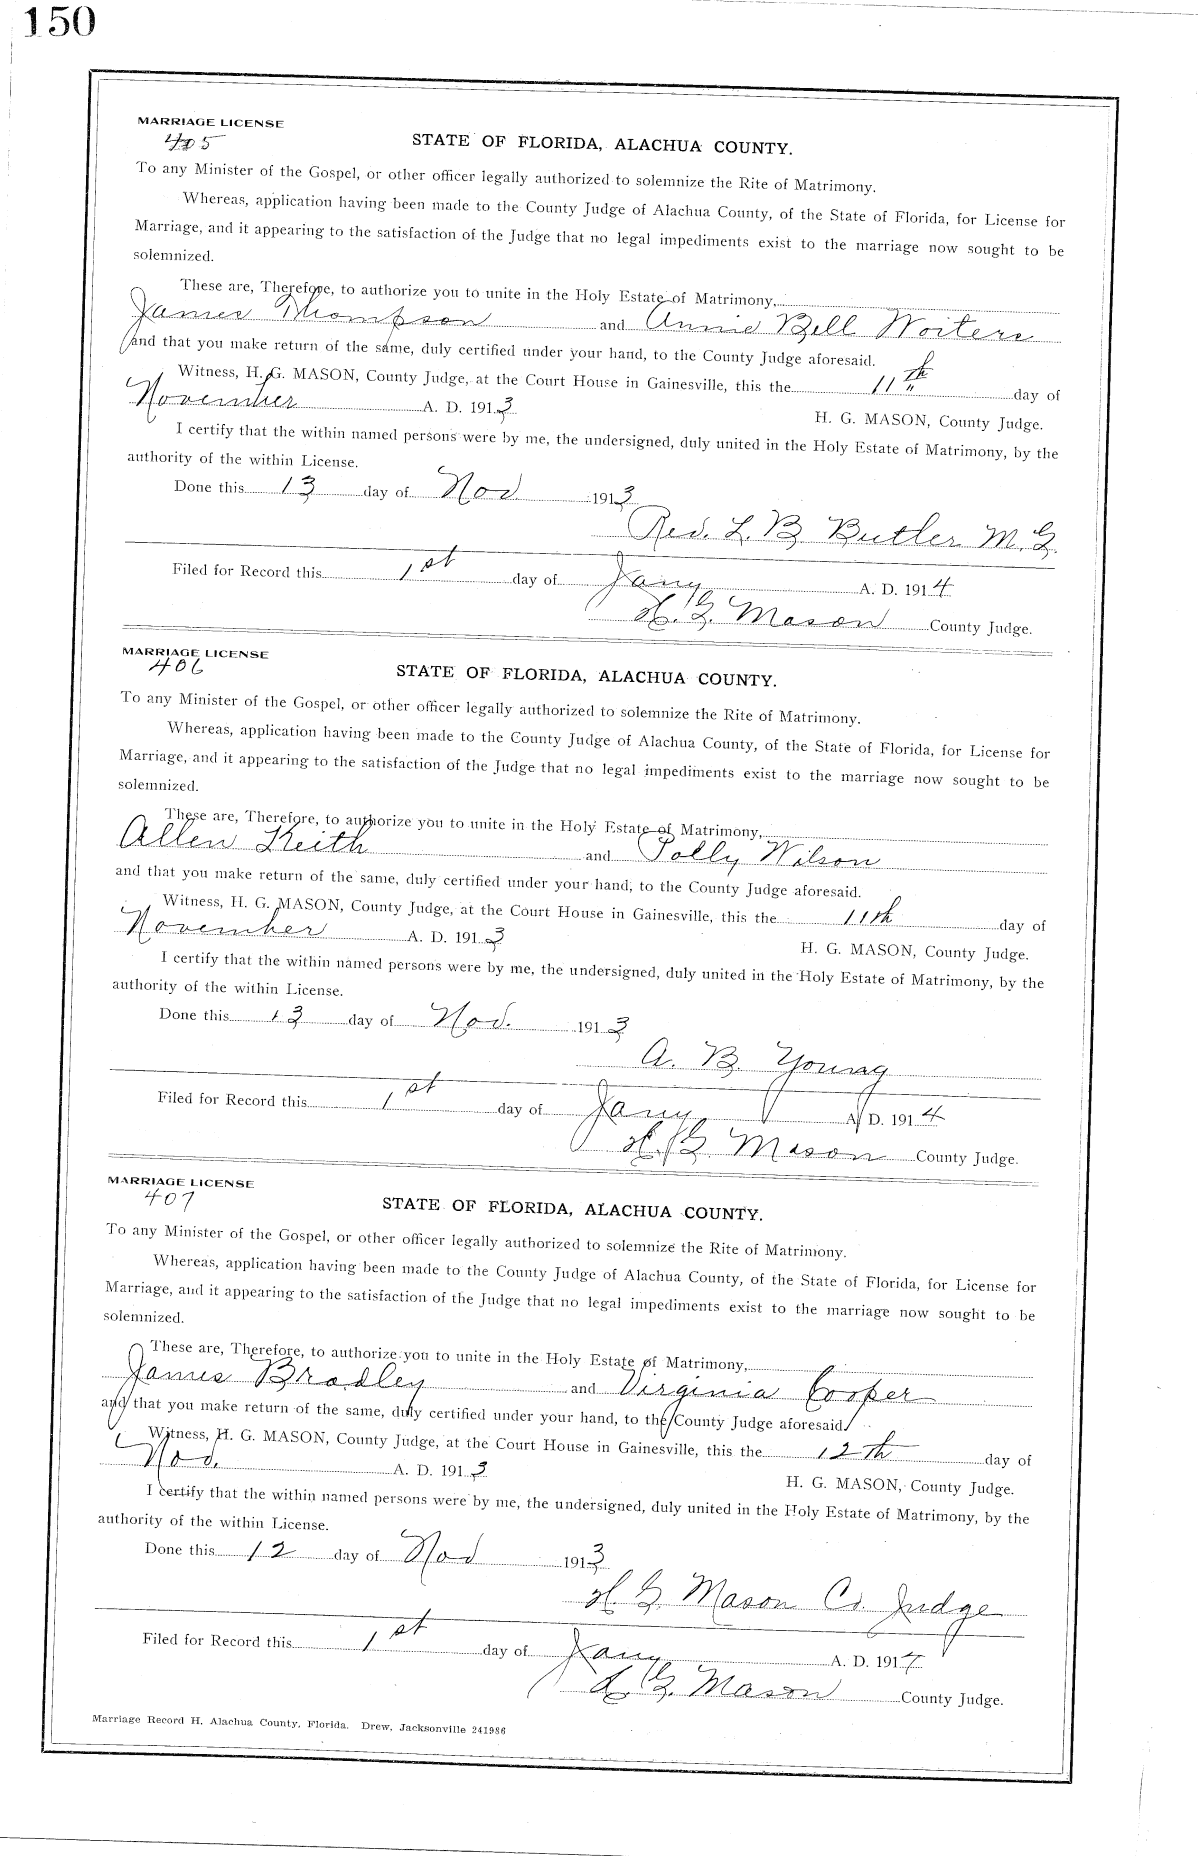 150
MARRIAGE LICENSE
405
STATE OF FLORIDA, ALACHUA COUNTY.
To any Minister of the Gospel, or other officer legally authorized to solemnize the Rite of Matrimony.
Whereas, application having been made to the County Judge of Alachua County, of the State of Florida, for License for
Marriage, and it appearing to the satisfaction of the Judge that no legal impediments exist to the marriage now sought to be
solemnized.
These are, Therefore, to authorize you to unite in the Holy Estate of Matrimony,
James Thompson and Annie Bell Woiters
and that you make return of the same, duly certified under your hand, to the County Judge aforesaid.
Witness, H. G. MASON, County Judge, at the Court House in Gainesville, this the 11th day of
November A. D. 1913
H. G. MASON, County Judge.
I certify that the within named persons were by me, the undersigned, duly united in the Holy Estate of Matrimony, by the
authority of the within License.
Done this 13 day of Nov 1913
Rev. L. B. Butler M. G.
Filed for Record this 1st day of Jany A. D. 1914
H. G. Mason County Judge.
MARRIAGE LICENSE
406
STATE OF FLORIDA, ALACHUA COUNTY.
To any Minister of the Gospel, or other officer legally authorized to solemnize the Rite of Matrimony.
Whereas, application having been made to the County Judge of Alachua County, of the State of Florida, for License for
Marriage, and it appearing to the satisfaction of the Judge that no legal impediments exist to the marriage now sought to be
solemnized.
These are, Therefore, to authorize you to unite in the Holy Estate of Matrimony,
Allen Keith and Polly Wilson
and that you make return of the same, duly certified under your hand, to the County Judge aforesaid.
Witness, H. G. MASON, County Judge, at the Court House in Gainesville, this the 11th day of
November A. D. 1913
H. G. MASON, County Judge.
I certify that the within named persons were by me, the undersigned, duly united in the Holy Estate of Matrimony, by the
authority of the within License.
Done this 13 day of Nov. 1913
A. B. Young
Filed for Record this 1st day of Jany A. D. 1914
H. G. Mason County Judge.
MARRIAGE LICENSE
407
STATE OF FLORIDA, ALACHUA COUNTY.
To any Minister of the Gospel, or other officer legally authorized to solemnize the Rite of Matrimony.
Whereas, application having been made to the County Judge of Alachua County, of the State of Florida, for License for
Marriage, and it appearing to the satisfaction of the Judge that no legal impediments exist to the marriage now sought to be
solemnized.
These are, Therefore, to authorize you to unite in the Holy Estate of Matrimony,
James Bradley and Virginia Cooper
and that you make return of the same, duly certified under your hand, to the County Judge aforesaid.
Witness, H. G. MASON, County Judge, at the Court House in Gainesville, this the 12th day of
Nov. A. D. 1913
H. G. MASON, County Judge.
I certify that the within named persons were by me, the undersigned, duly united in the Holy Estate of Matrimony, by the
authority of the within License.
Done this 12 day of Nov 1913
H. G. Mason Co. Judge
Filed for Record this 1st day of Jany A. D. 1914
H. G. Mason County Judge.
Marriage Record H, Alachua County, Florida. Drew, Jacksonville 241986